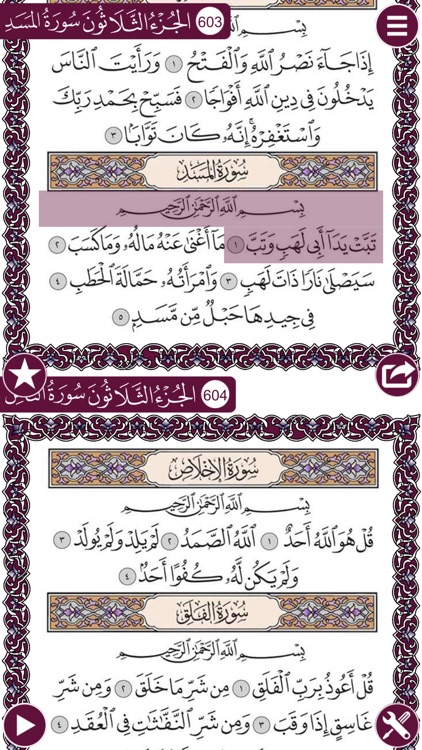 الجُزْءُ الثَّلَاثُونَ سُورَةُ المَسَدِ 603
بِسْمِ اللَّهِ الرَّحْمَٰنِ الرَّحِيمِ
إِذَا جَآءَ نَصْرُ ٱللَّهِ وَٱلْفَتْحُ ١ وَرَأَيْتَ ٱلنَّاسَ
يَدْخُلُونَ فِى دِينِ ٱللَّهِ أَفْوَاجًا ٢ فَسَبِّحْ بِحَمْدِ رَبِّكَ
وَٱسْتَغْفِرْهُ ۚ إِنَّهُۥ كَانَ تَوَّابًۢا ٣
سُورَةُ المَسَدِ
بِسْمِ ٱللَّهِ ٱلرَّحْمَٰنِ ٱلرَّحِيمِ
تَبَّتْ يَدَآ أَبِى لَهَبٍ وَتَبَّ ١ مَآ أَغْنَىٰ عَنْهُ مَالُهُۥ وَمَا كَسَبَ ٢
سَيَصْلَىٰ نَارًا ذَاتَ لَهَبٍ ٣ وَٱمْرَأَتُهُۥ حَمَّالَةَ ٱلْحَطَبِ ٤
فِى جِيدِهَا حَبْلٌ مِّن مَّسَدٍۭ ٥
الجُزْءُ الثَّلَاثُونَ سُورَةُ 604
سُورَةُ الإِخْلَاصِ
بِسْمِ ٱللَّهِ ٱلرَّحْمَٰنِ ٱلرَّحِيمِ
قُلْ هُوَ ٱللَّهُ أَحَدٌ ١ ٱللَّهُ ٱلصَّمَدُ ٢ لَمْ يَلِدْ وَلَمْ يُولَدْ ٣
وَلَمْ يَكُن لَّهُۥ كُفُوًا أَحَدٌۢ ٤
سُورَةُ الفَلَقِ
بِسْمِ ٱللَّهِ ٱلرَّحْمَٰنِ ٱلرَّحِيمِ
قُلْ أَعُوذُ بِرَبِّ ٱلْفَلَقِ ١ مِن شَرِّ مَا خَلَقَ ٢ وَمِن شَرِّ
غَاسِقٍ إِذَا وَقَبَ ٣ وَمِن شَرِّ ٱلنَّفَّٰثَٰتِ فِى ٱلْعُقَدِ ٤